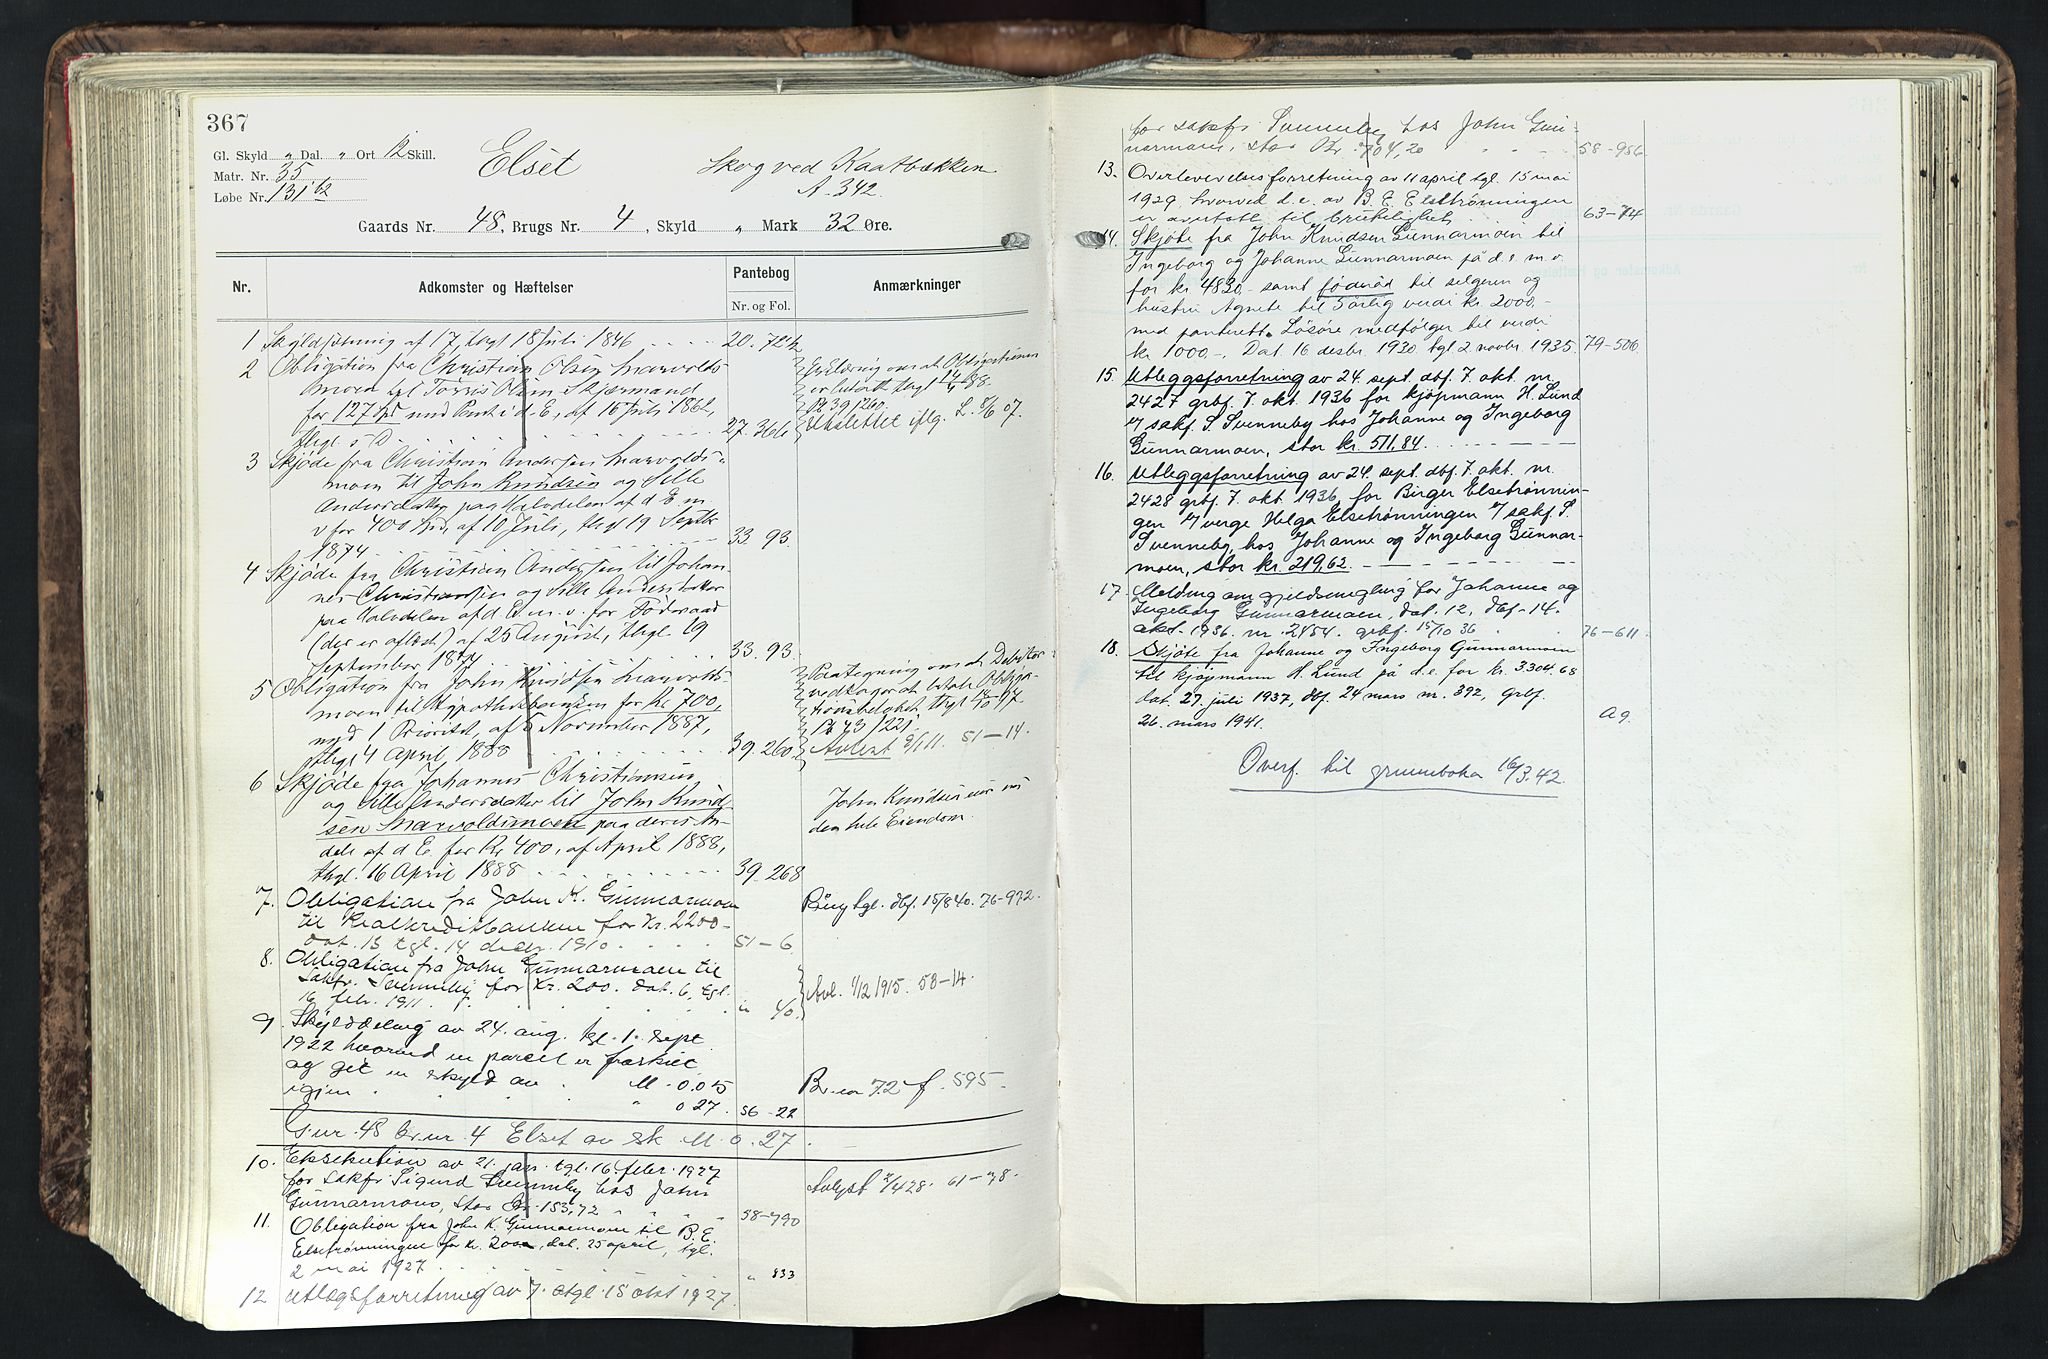 367
Gl. Skyld „ Dal. „ Ort 12 Skill.
Matr. Nr. 35
Løbe Nr. 131 b2
Elset
Skog ved Kaatbækken
A. 342.
Gaards Nr. 48, Brugs Nr. 4, Skyld „ Mark 32 Øre.
Nr. Adkomster og Hæftelser Pantebog Anmærkninger
Nr. og Fol.
1 Skyldsætning af 17, thgl 18 Juli 1846 20. 72b
2 Obligation fra Christian Olsen
moen til Torris Olsen Skjærmand
for 127 Spd med Pant i d. E., af 16 Juli 1862,
thgl. s. D. 27. 366
Erklæring om at Obligationen
er betalt thgl 14/4 88.
Pb 39, 260.
Udslettet iflg. L. 8/6 07.
3 Skjøde fra Christian Andersen
moen til John Knudsen og Sille
Andersdatter paa Halvdelen af d. E. m.
v. for 400 Spd, af 10 Juli, thgl 19 Septbr
1874 33. 93.
4 Skjøde fra Christian Andersen til Johan-
nes Christiansen og Sille Andersdatter
paa Halvdelen af d. E. m. v. for Føderaad
(der er aflæst) af 25 August, thgl. 19
September 1874 33. 93.
5 Obligation fra John Knudsen
moen til Hypothekbanken for Kr 700,
med 1 Prioritet, af 5 November 1887,
thgl 4 April 1888 39. 260
Paategning om at Debitor
vedtager at betale Obliga-
tionsbeløbet thgl
Pb 43/221
Avlest 9/1 11. 51-14.
6 Skjøde fra Johannes Christiansen
og Sille Andersdatter til John Knud-
sen paa deres An-
dele af d. E. for Kr 400, af April 1888,
thgl. 16 April 1888 39. 268
John Knudsen eier nu
den hele Eiendom.
7. Obligation fra John K. Gunnarmoen
til Realkreditbanken for Kr. 2200-
dat. 13 tgl. 14 decbr. 1910 51-6
tgl. dbf. 15/8 40. 76-972.
8. Obligation fra John Gunnarmoen til
Sakfr. Svenneby for Kr. 200. dat. 6, tgl.
16 febr. 1911. „ 40.
Avl. 1/12 1915. 58-14.
9. Skylddeling av 24. aug. tgl. 1. sept
1922 hvorved en parcel er fraskilt
og git en skyld av M. 0.05
igjen „ 0 27. 56-22
Br. nr 72 f. 595.
G. nr. 48 br. nr. 4 Elset av sk. M. 0. 27.
10. Eksekution av 21. jan. tgl. 16. febr. 1927
for sakfr Sigurd Svenneby hos John
Gunnarmoen, stor Kr. 153,72 58-790
Avlyst 2/4 28. 61-78.
11. Obligation fra John K. Gunnarmoen til B. E.
Elsetrønningen for kr. 2000, dat. 25 april, tgl.
2 mai 1927 „ 833
12 Utlægsforretning av 7. tgl. 15 okt 1927.
for sakfr Svenneby hos John Gun-
narmoen, stor Kr. 704,20 58-986
13. Overlevelsesforretning av 11 april tgl. 15 mai
1929 hvorved d. e. av B. E. Elsetrønningen
er avutatt til brukelighet 63-74
14. Skjøte fra John Knudsen Gunnarmoen til
Ingeborg og Johanne Gunnarmoen på d. e. m. v.
for kr 4830,- samt føderåd til selgeren og
hustru Agnete til 5 årlig verdi kr. 2000,-
med panterett. Løsøre medfølger til verdi
kr 1000-. Dat. 16 desbr. 1930 tgl. 2 novbr. 1935. 79-506
15. Utleggsforretning av 24. sept. dbf. 7. okt. nr.
2427 grbf. 7. okt. 1936 for kjøpmann H. Lund
v/ sakf. S. Svenneby hos Johanne og Ingeborg
Gunnarmoen, stor kr. 511,84.
16. Utleggsforretning av 24. sept. dbf. 7. okt. nr.
2428 grbf. 7. okt. 1936, for Birger Elsetrønnin-
gen v/ verge Helga Elsetrønningen v/ sakf. S.
Svenneby, hos Johanne og Ingeborg Gunnar-
moen, stor kr. 219,62.
17. Melding om gjeldsmegling for Johanne og
Ingeborg Gunnarmoen, dat. 12, dbf. 14.
okt. 1936. nr. 2454. grbf. 15/10 36 76-611.
18. Skjøte fra Johanne og Ingeborg Gunnarmoen
til kjøpmann H. Lund på d. e. for kr. 3304.68
dat. 27. juli 1937, dbf. 24 mars nr. 392, grbf.
26. mars 1941. A9.
Overf. til grunnboka 16/3.42.